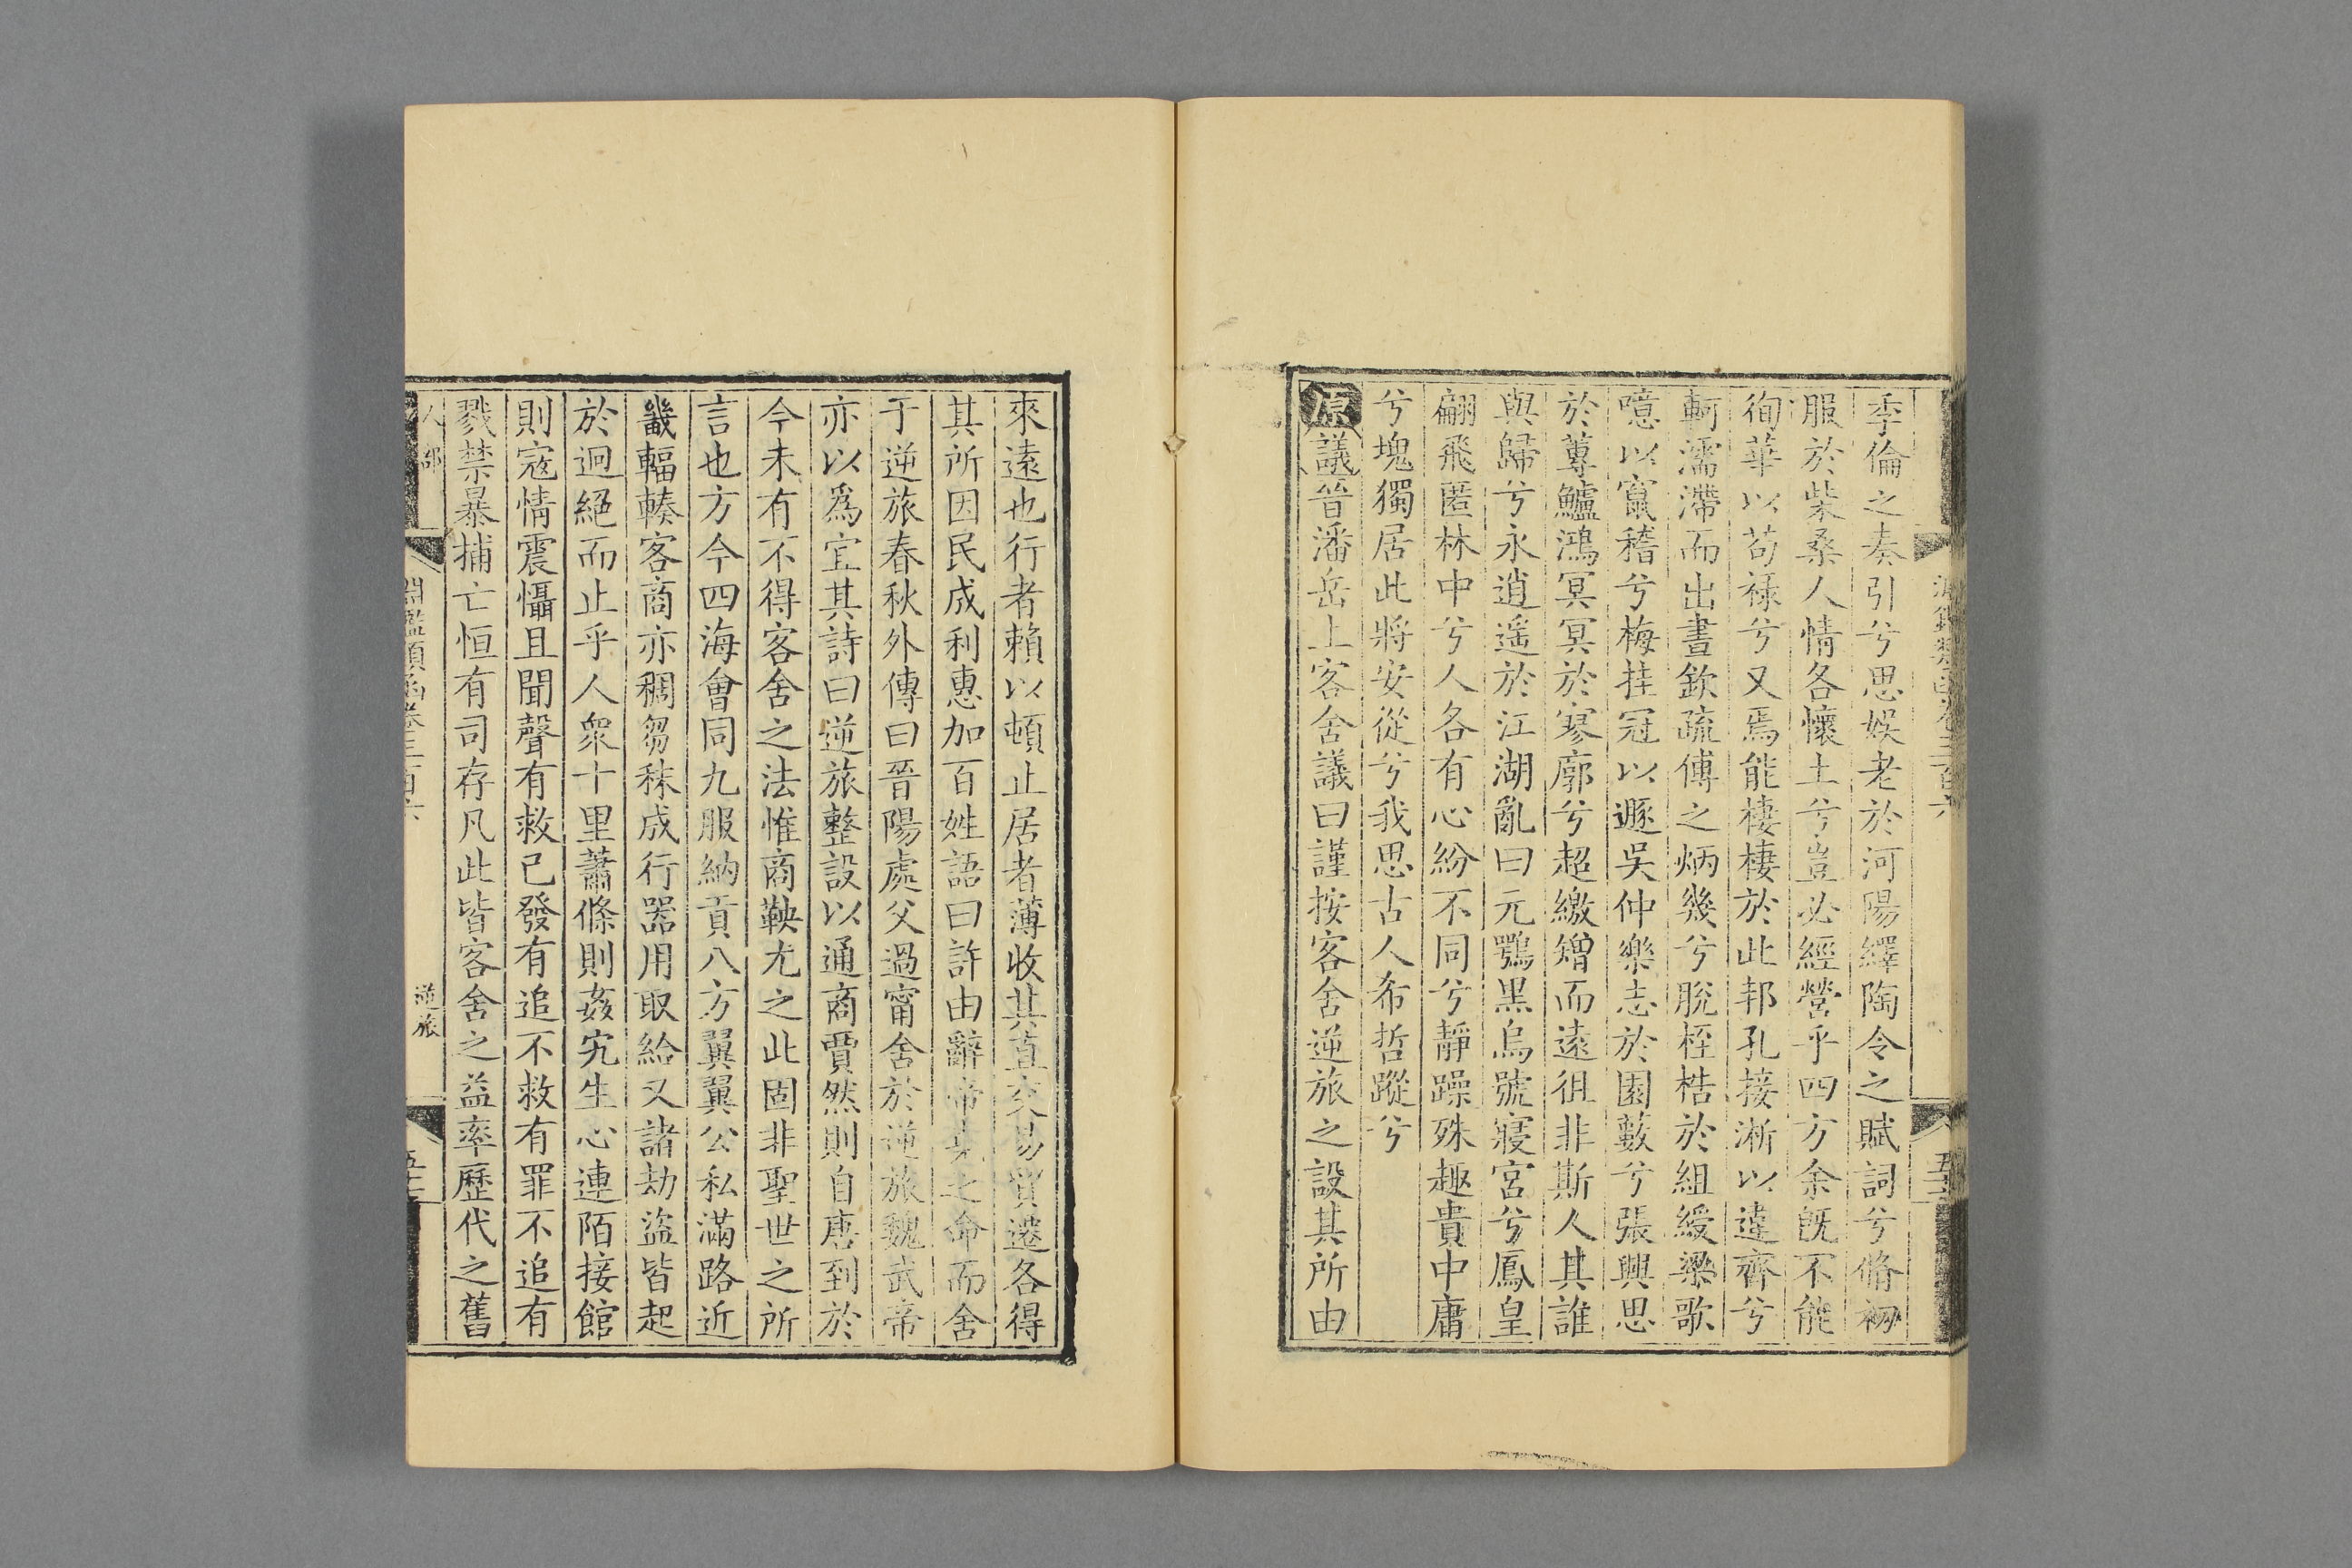 季倫之奏引兮思娛老於河陽繹陶令之賦詞兮脩初
服於柴桑人情各懷土兮豈必經營乎四方余旣不能
徇華以苟祿兮又焉能棲棲於此邦孔接淅以違齊兮
軻濡滯而出晝欽疏傅之炳幾兮脫桎梏於組綬梁歌
噫以竄稽兮梅挂冠以遯吳仲樂志於園藪兮張興思
於蓴鱸鴻冥冥於寥廓兮超繳矰而遠徂非斯人其誰
與歸兮永逍遥於江湖亂曰元鶚黒烏號寢宮兮鳳皇
翩飛匿林中兮人各有心紛不同兮靜躁殊趣貴中庸
兮塊獨居此將安從兮我思古人希哲蹤兮
原議晉潘岳上客舍議曰謹按客舍逆旅之設其所由
來遠也行者賴以頓止居者薄收其直交易貿遷各得
其所因民成利惠加百姓語曰許由辭帝堯之命而舍
于逆旅春秋外傳曰晉陽處父過甯舍於逆旅魏武帝
亦以爲宜其詩曰逆旅整設以通商賈然則自唐到於
今未有不得客舍之法惟商鞅尤之此固非聖世之所
言也方今四海會同九服納貢八方翼翼公私滿路近
畿輻輳客商亦稠芻秣成行器用取給又諸劫盜皆起
於迥絕而止乎人衆十里蕭條則姦宄生心連陌接館
則寇情震懾且聞聲有救已發有追不救有罪不追有
戮禁暴捕亡恒有司存凡此皆客舍之益率歷代之舊
人部
淵鑑類函卷三百六
逆旅